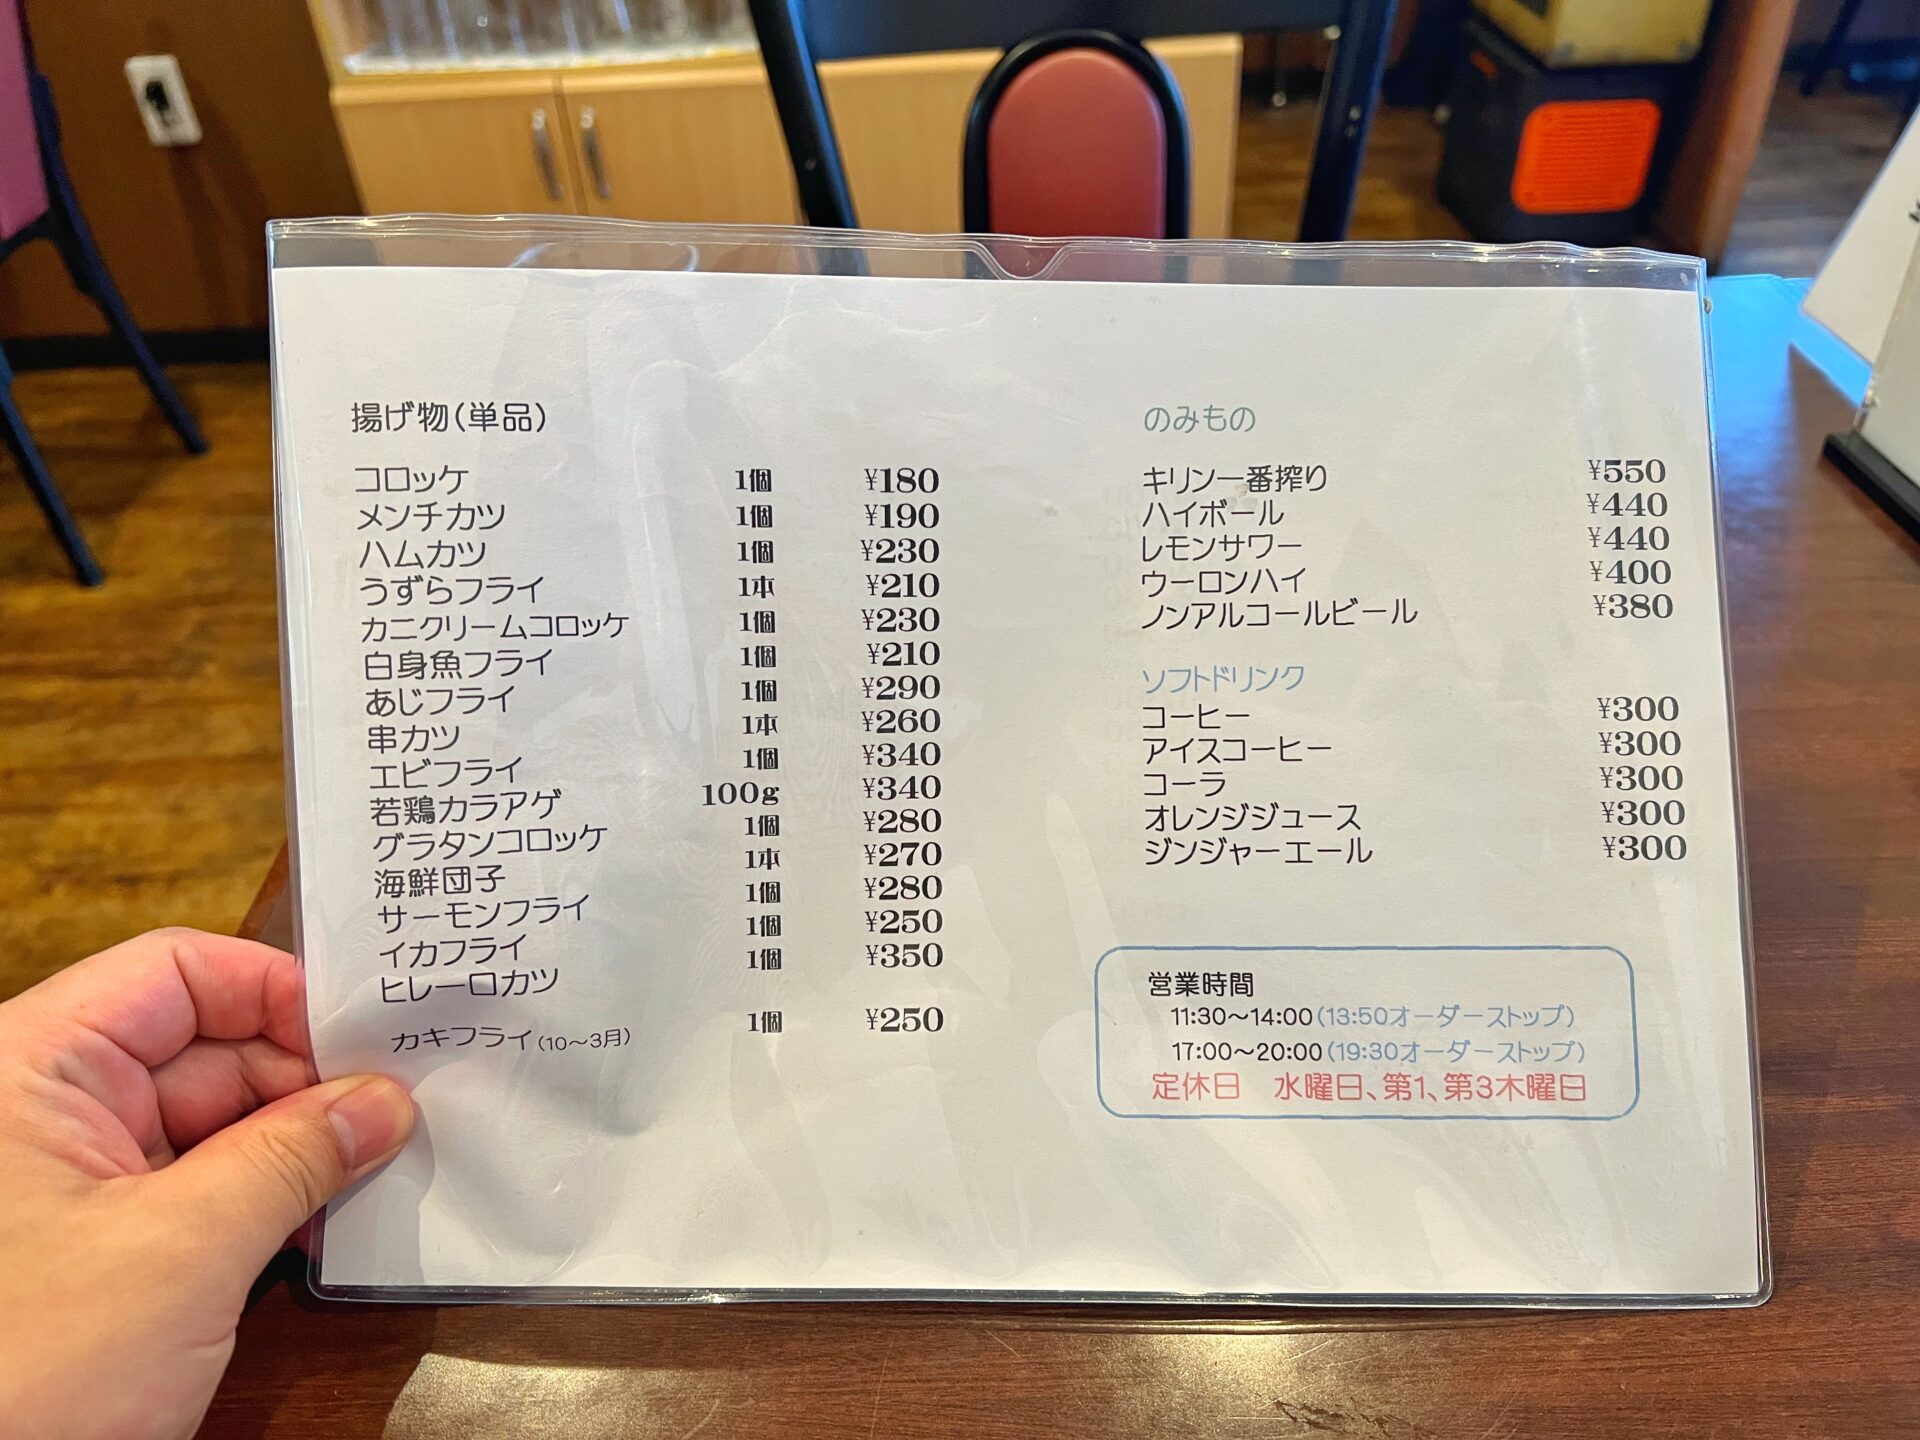 揚げ物(単品)
コロッケ 1個 ¥180
メンチカツ 1個 ¥190
ハムカツ 1個 ¥230
うずらフライ 1本 ¥210
カニクリームコロッケ 1個 ¥230
白身魚フライ 1個 ¥210
あじフライ 1個 ¥290
串カツ 1本 ¥260
エビフライ 1個 ¥340
若鶏カラアゲ 100g ¥340
グラタンコロッケ 1個 ¥280
海鮮団子 1本 ¥270
サーモンフライ 1個 ¥280
イカフライ 1個 ¥250
ヒレ一口カツ 1個 ¥350
カキフライ(10~3月) 1個 ¥250
のみもの
キリン一番搾り ¥550
ハイボール ¥440
レモンサワー ¥440
ウーロンハイ ¥400
ノンアルコールビール ¥380
ソフトドリンク
コーヒー ¥300
アイスコーヒー ¥300
コーラ ¥300
オレンジジュース ¥300
ジンジャーエール ¥300
営業時間
11:30~14:00(13:50オーダーストップ)
17:00~20:00(19:30オーダーストップ)
定休日 水曜日、第1、第3木曜日